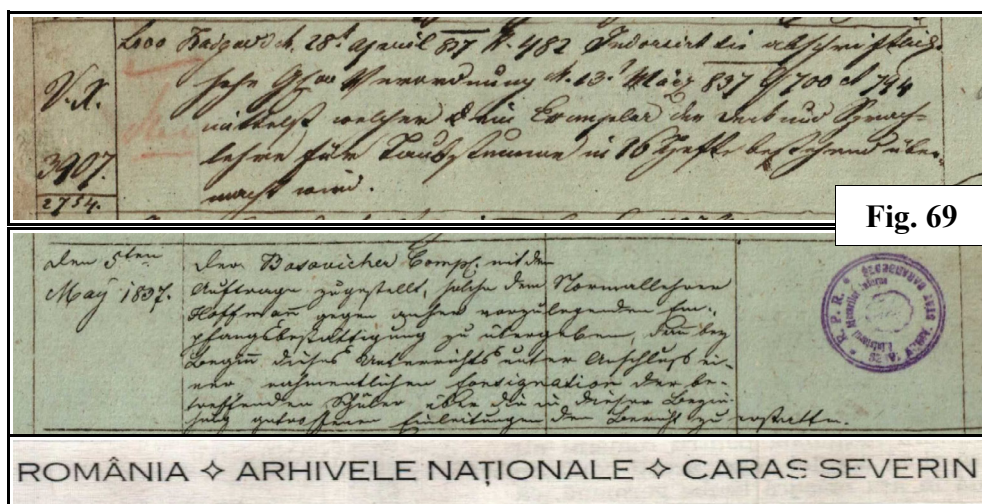 dto 28t April 837 N. 482 Indorsirt die abschriftliche
hohe Verordnung d. 13. März 837 700 et 794
V. X.
mittelst welcher ein Exemplar der und Sprach-
3907.
lehre für Taubstumme in 16 Hefte bestehend über-
2754.
macht wird.
Fig. 69
den 5ten
May 1837.
Der Bosovicher Comp. mit dem
Auftrage zugestellt, solche dem Normallehrer
Hoffmann gegen anher vorzulegenden Em-
pfangsbestättigung zu übergeben,
Beginn dieses Unterrichts unter Anschluß ei-
ner nahmentlichen Consignation der be-
treffenden Schüler über die in dieser Bezie-
hung getroffenen Einleitungen den Bericht zu erstatten.
R. P. R.
ROMÂNIA ✧ ARHIVELE NAȚIONALE ✧ CARAS SEVERIN